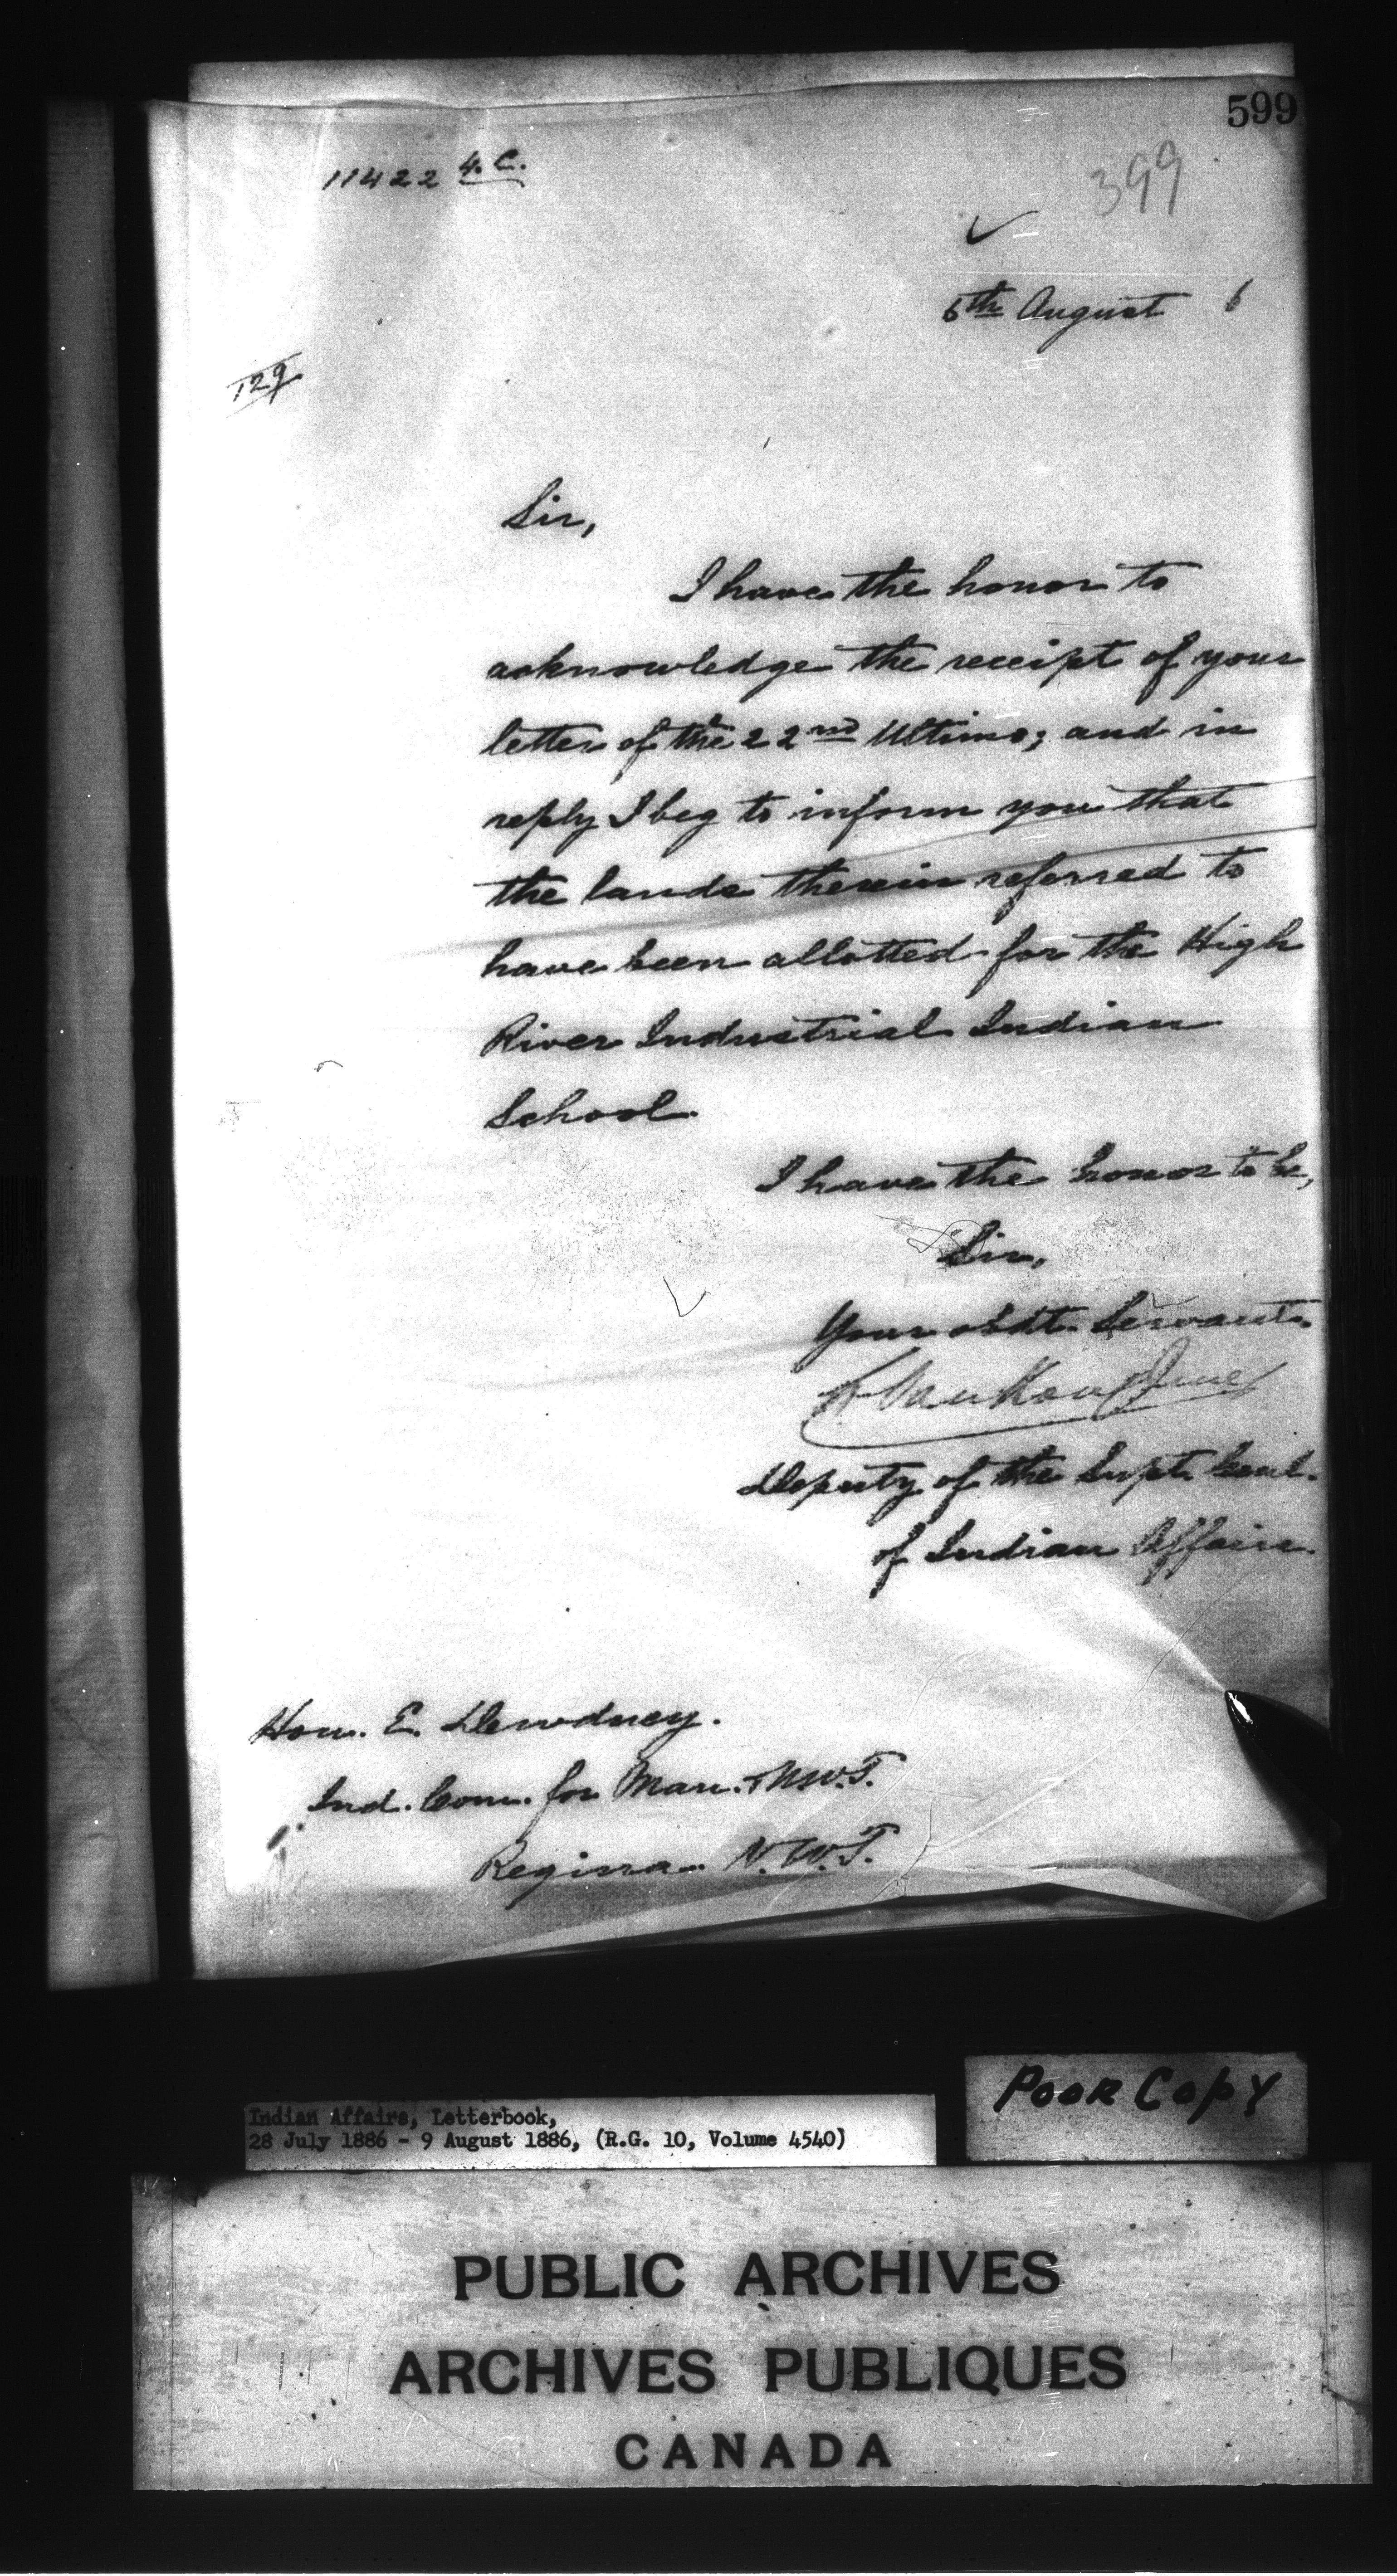 599
399
11422 4.C.
6th August 6
129
Sir,
I have the honor to
acknowledge the receipt of your
letter of the 22nd Ultimo; and in
reply I beg to inform you that
the lands therein referred to
have been allotted for the High
River Industrial Indian
School.
I have the honor to be,
Sir,
Your obdt. Servant.
L. VanKoughnet
Deputy of the Supt. Genl.
of Indian Affairs.
Hon. E. Dewdney.
Ind. Com. for Man. & N.W.T.
Regina. N.W.T.
POOR COPY
Indian Affairs, Letterbook,
28 July 1886 - 9 August 1886, (R.G. 10, Volume 4540)
PUBLIC ARCHIVES
ARCHIVES PUBLIQUES
CANADA